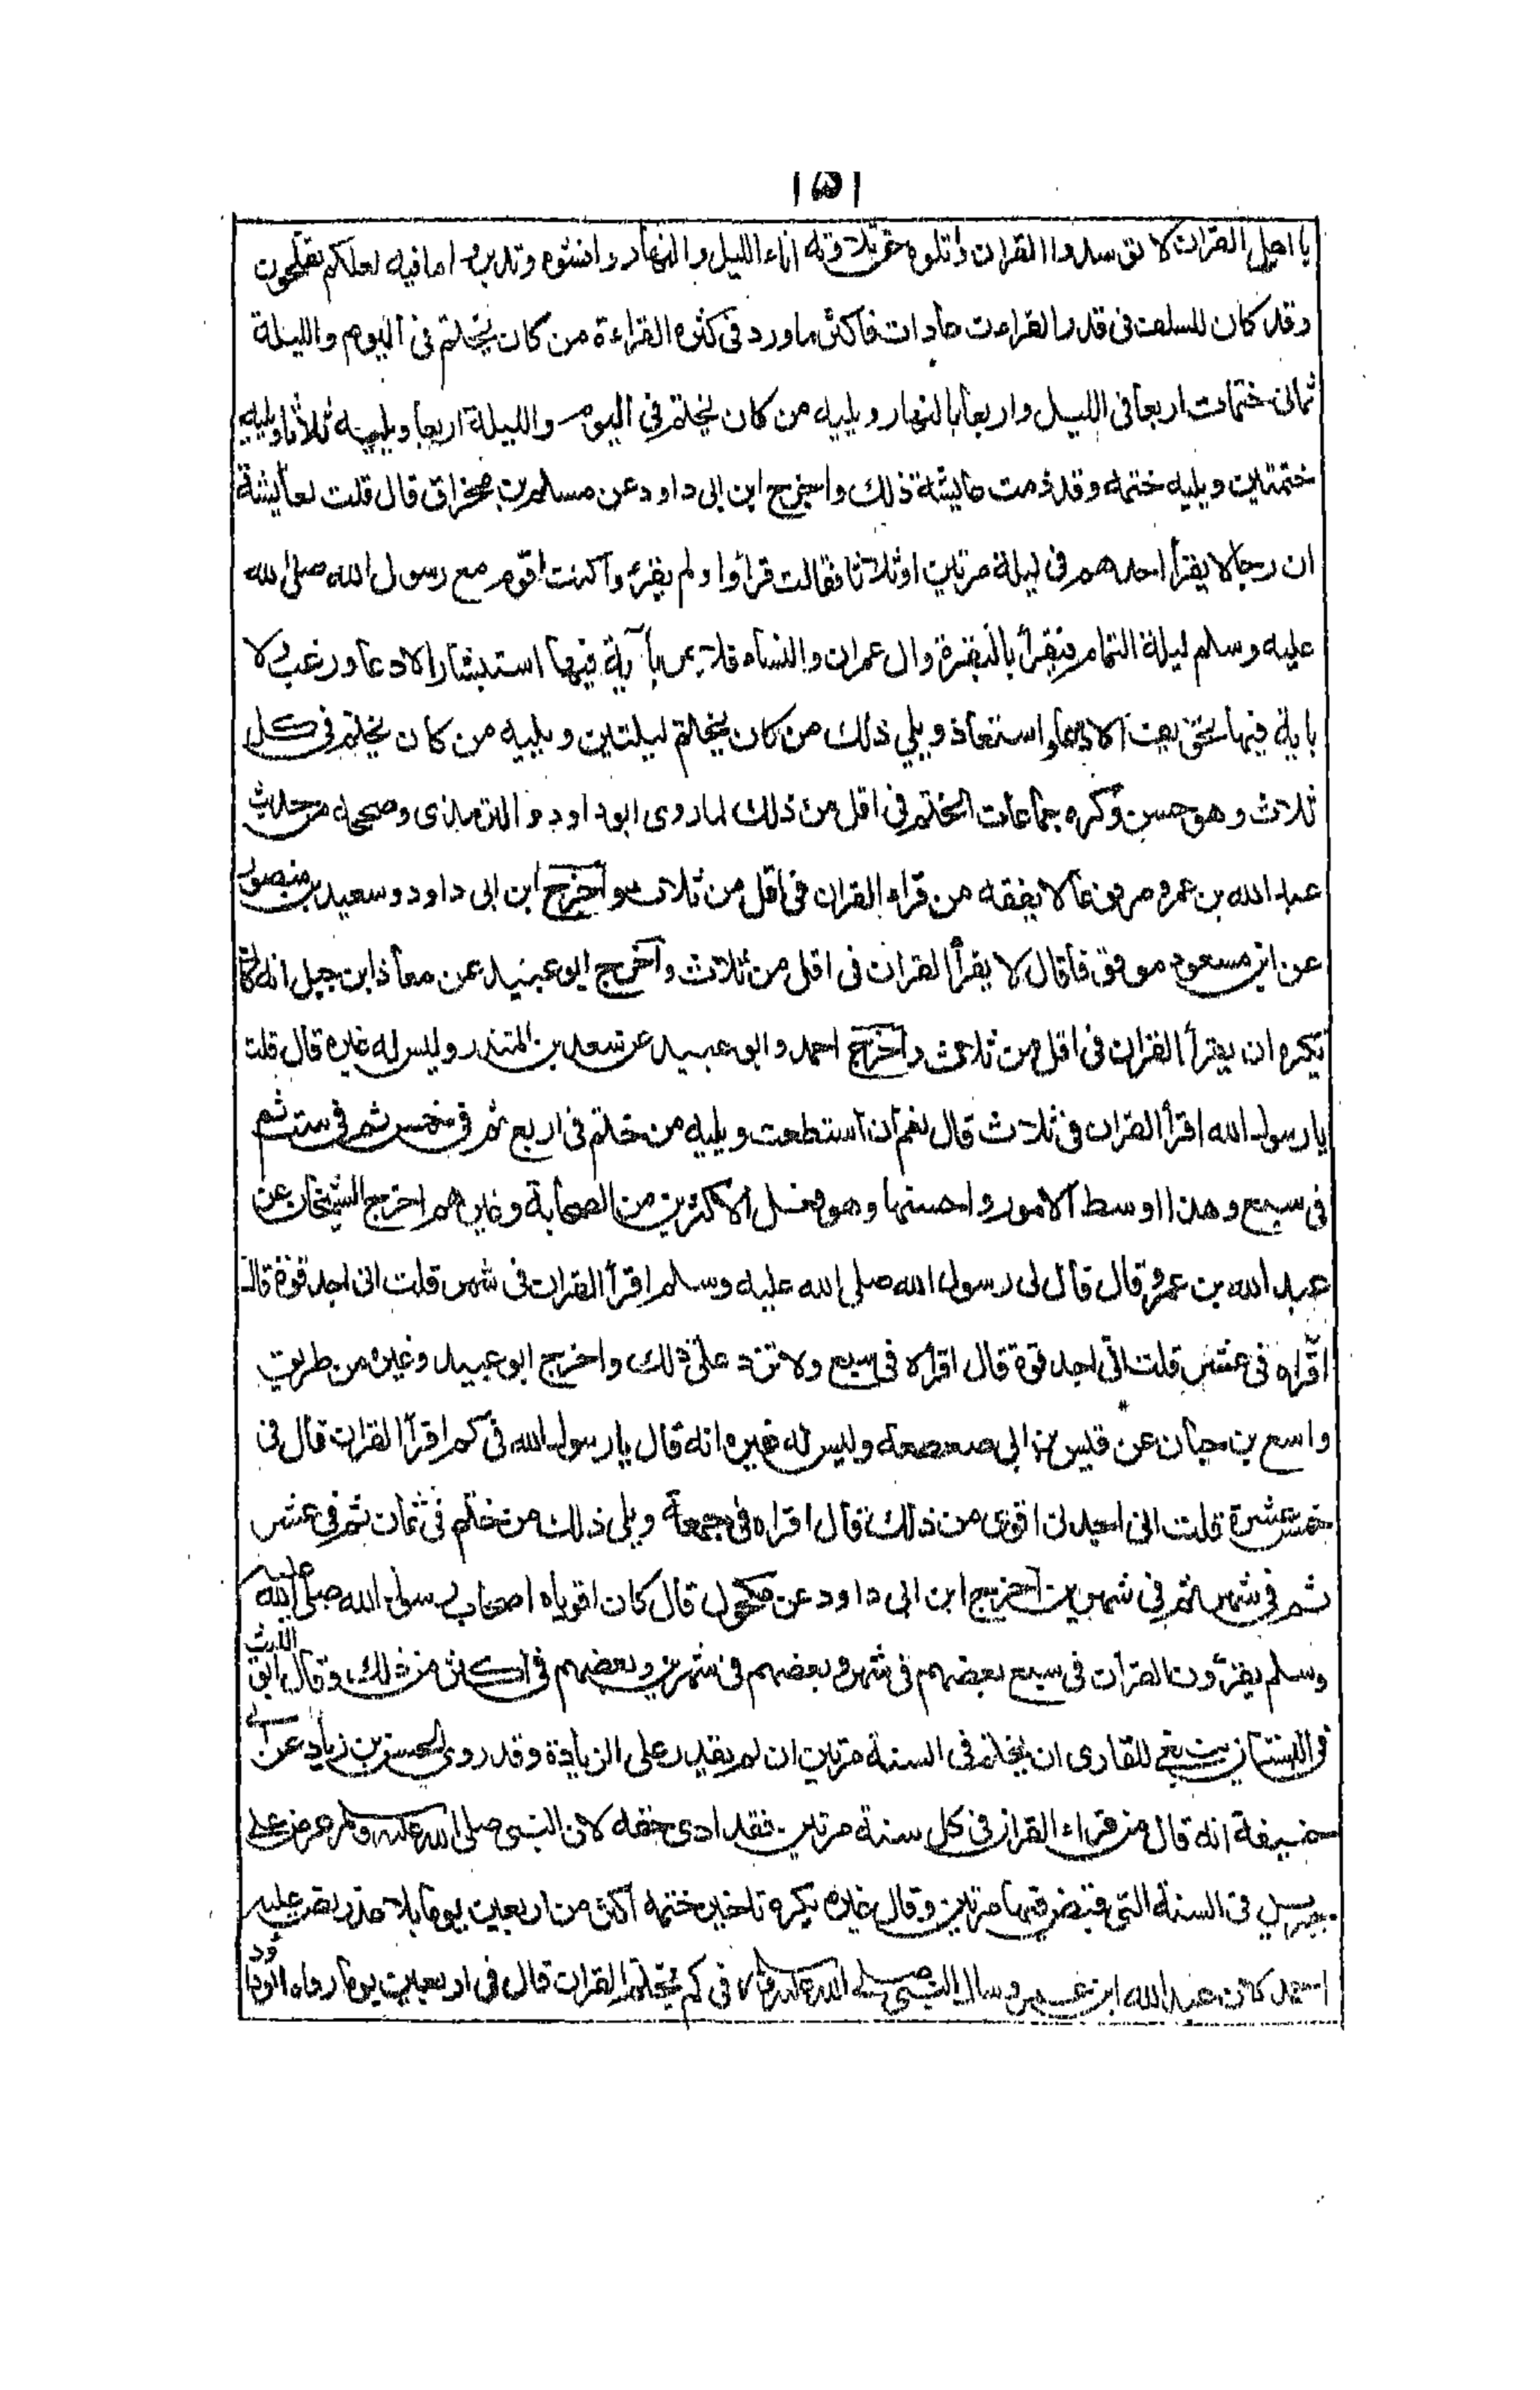 ١٥١
يا اهل القرات لا توسدوا القران واتلوه حق تلاوته اناء الليل والنهار وافشوه وتدبروا ما فيه لعلكم تفلحون
وقد كان للسلف فى قدر القراءت عادات فاكثر ما ورد فى كثره القراءة من كان يختم فى اليوم والليلة
ثمان ختمات اربعا فى الليل واربعا بالنهار ويليه من كان يختم فى اليوم والليلة اربعا ويليه ثلاثا ويليه
ختمتين ويليه ختمه وقد ذمت عايشة ذلك واخرج ابن ابى داود عن مسلم بن مخراق قال قلت لعايشة
ان رجالا يقرأ احدهم فى ليلة مرتين او ثلاثا فقالت قراوا ولم يقرؤا كنت اقوم مع رسول الله صلى الله
عليه وسلم ليلة التمام فيقرأ بالبقرة وال عمران والنساء فلا يمر بآية فيها استبشار الا دعا ورغب ولا
باية فيها تخويف الا دعا واستعاذ ويلي ذلك من كان يختم ليلتين ويليه من كان يختم فى كل
ثلاث وهو حسن وكره جماعات الختم فى اقل من ذلك لما روى ابو داود والترمذى وصححه من حديث
عبد الله بن عمرو مرفوعا لا يفقه من قراء القران فى اقل من ثلاث واخرج ابن ابى داود وسعيد بن منصور
عن ابن مسعود موقوفا قال لا يقرأ القران فى اقل من ثلاث واخرج ابو عبيد عن معاذ ابن جبل انه كان
يكره ان يقرأ القران فى اقل من ثلاث واخرج احمد وابو عبيد عن سعد بن المنذر وليس له غيره قال قلت
يا رسول الله اقرأ القران فى ثلاث قال نعم ان استطعت ويليه من ختم فى اربع ثم فى خمس ثم فى ست ثم
فى سبع وهذا اوسط الامور واحسنها وهو فعل الاكثرين من الصحابة وغيرهم اخرج الشيخان عن
عبد الله بن عمرو قال قال لى رسول الله صلي الله عليه وسلم اقرأ القران فى شهر قلت انى اجد قوة قال
اقراه فى عشر قلت انى اجد قوة قال اقراه فى سبع ولا تزد على ذلك واخرج ابو عبيد وغيره من طريق
واسع بن حبان عن قيس بن ابى صعصعه وليس له غيره انه قال يا رسول الله فى كم اقرأ القران قال فى
خمس عشرة قلت انى اجدنى اقوى من ذلك قال اقراه فى جمعة ويلى ذلك من ختم فى ثمان ثم فى عشر
ثم فى شهر ثم فى شهرين اخرج ابن ابى داود عن مكحول قال كان اقوياء اصحاب رسول الله صلى الله عليه
وسلم يقرؤن القران فى سبع بعضهم فى شهر وبعضهم فى شهرين وبعضهم فى اكثر من ذلك وقال ابو الليث
فى البستان ينبغى للقارى ان يختم فى السنة مرتين ان لم يقدر على الزيادة وقد روى الحسن بن زياد عن ابى
حنيفة انه قال من قراء القران فى كل سنة مرتين فقد ادى حقه لان النبى صلى الله عليه وسلم عرض على
جبريل فى السنة التى قبض فيها مرتين وقال غيره يكره تاخير ختمه اكثر من اربعين يوما بلا عذر نص عليه
احمد كان عبد الله ابن عمر وسال النبى صلى الله عليه وسلم فى كم يختم القران قال فى اربعين يوما رواه ابو داود